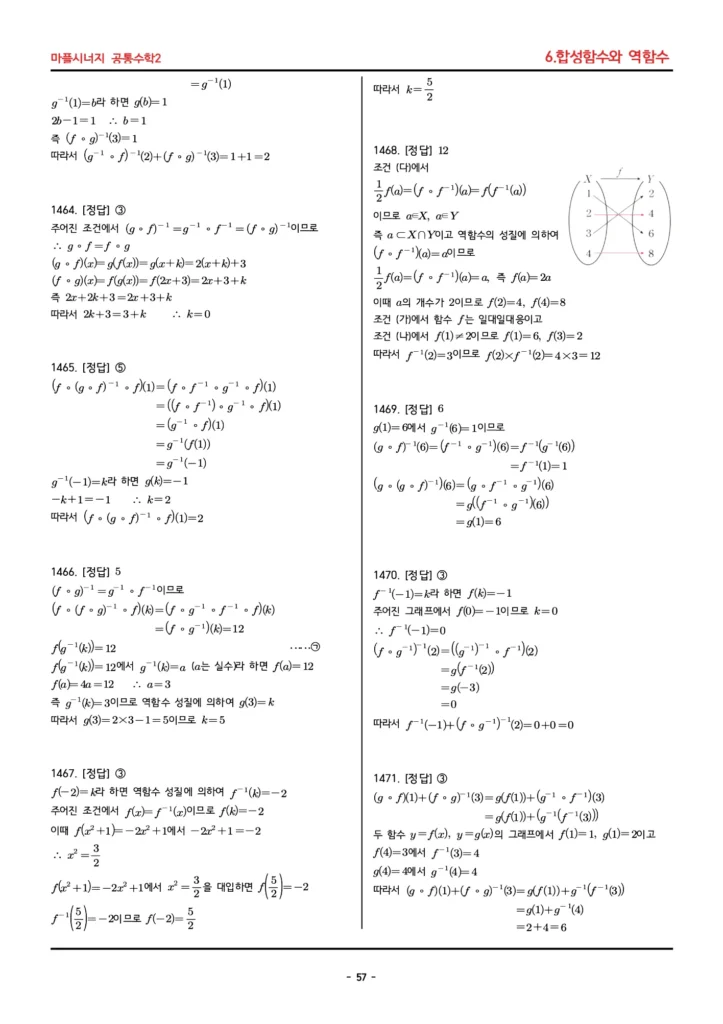 마플시너지 공통수학2
6.합성함수와 역함수
=g⁻¹(1)
g⁻¹(1)=b라 하면 g(b)=1
2b−1=1 ∴ b=1
즉 (f∘g)⁻¹(3)=1
따라서 (g⁻¹∘f)⁻¹(2)+(f∘g)⁻¹(3)=1+1=2
1464. [정답] ③
주어진 조건에서 (g∘f)⁻¹=g⁻¹∘f⁻¹=(f∘g)⁻¹이므로
∴ g∘f=f∘g
(g∘f)(x)=g(f(x))=g(x+k)=2(x+k)+3
(f∘g)(x)=f(g(x))=f(2x+3)=2x+3+k
즉 2x+2k+3=2x+3+k
따라서 2k+3=3+k ∴ k=0
1465. [정답] ⑤
(f∘(g∘f)⁻¹∘f)(1)=(f∘f⁻¹∘g⁻¹∘f)(1)
=((f∘f⁻¹)∘g⁻¹∘f)(1)
=(g⁻¹∘f)(1)
=g⁻¹(f(1))
=g⁻¹(−1)
g⁻¹(−1)=k라 하면 g(k)=−1
−k+1=−1 ∴ k=2
따라서 (f∘(g∘f)⁻¹∘f)(1)=2
1466. [정답] 5
(f∘g)⁻¹=g⁻¹∘f⁻¹이므로
(f∘(f∘g)⁻¹∘f)(k)=(f∘g⁻¹∘f⁻¹∘f)(k)
=(f∘g⁻¹)(k)=12
f(g⁻¹(k))=12 ⋯⋯㉠
f(g⁻¹(k))=12에서 g⁻¹(k)=a (a는 실수)라 하면 f(a)=12
f(a)=4a=12 ∴ a=3
즉 g⁻¹(k)=3이므로 역함수 성질에 의하여 g(3)=k
따라서 g(3)=2×3−1=5이므로 k=5
1467. [정답] ③
f(−2)=k라 하면 역함수 성질에 의하여 f⁻¹(k)=−2
주어진 조건에서 f(x)=f⁻¹(x)이므로 f(k)=−2
이때 f(x²+1)=−2x²+1에서 −2x²+1=−2
∴ x²=3/2
f(x²+1)=−2x²+1에서 x²=3/2을 대입하면 f(5/2)=−2
f⁻¹(5/2)=−2이므로 f(−2)=5/2
따라서 k=5/2
1468. [정답] 12
조건 (다)에서
1/2 f(a)=(f∘f⁻¹)(a)=f(f⁻¹(a))
이므로 a∈X, a∈Y
즉 a⊂X∩Y이고 역함수의 성질에 의하여
(f∘f⁻¹)(a)=a이므로
1/2 f(a)=(f∘f⁻¹)(a)=a, 즉 f(a)=2a
이때 a의 개수가 2이므로 f(2)=4, f(4)=8
조건 (가)에서 함수 f는 일대일대응이고
조건 (나)에서 f(1)≠2이므로 f(1)=6, f(3)=2
따라서 f⁻¹(2)=3이므로 f(2)×f⁻¹(2)=4×3=12
X f Y
1 2
2 4
3 6
4 8
1469. [정답] 6
g(1)=6에서 g⁻¹(6)=1이므로
(g∘f)⁻¹(6)=(f⁻¹∘g⁻¹)(6)=f⁻¹(g⁻¹(6))
=f⁻¹(1)=1
(g∘(g∘f)⁻¹)(6)=(g∘f⁻¹∘g⁻¹)(6)
=g((f⁻¹∘g⁻¹)(6))
=g(1)=6
1470. [정답] ③
f⁻¹(−1)=k라 하면 f(k)=−1
주어진 그래프에서 f(0)=−1이므로 k=0
∴ f⁻¹(−1)=0
(f∘g⁻¹)⁻¹(2)=((g⁻¹)⁻¹∘f⁻¹)(2)
=g(f⁻¹(2))
=g(−3)
=0
따라서 f⁻¹(−1)+(f∘g⁻¹)⁻¹(2)=0+0=0
1471. [정답] ③
(g∘f)(1)+(f∘g)⁻¹(3)=g(f(1))+(g⁻¹∘f⁻¹)(3)
=g(f(1))+(g⁻¹(f⁻¹(3)))
두 함수 y=f(x), y=g(x)의 그래프에서 f(1)=1, g(1)=2이고
f(4)=3에서 f⁻¹(3)=4
g(4)=4에서 g⁻¹(4)=4
따라서 (g∘f)(1)+(f∘g)⁻¹(3)=g(f(1))+g⁻¹(f⁻¹(3))
=g(1)+g⁻¹(4)
=2+4=6
- 57 -